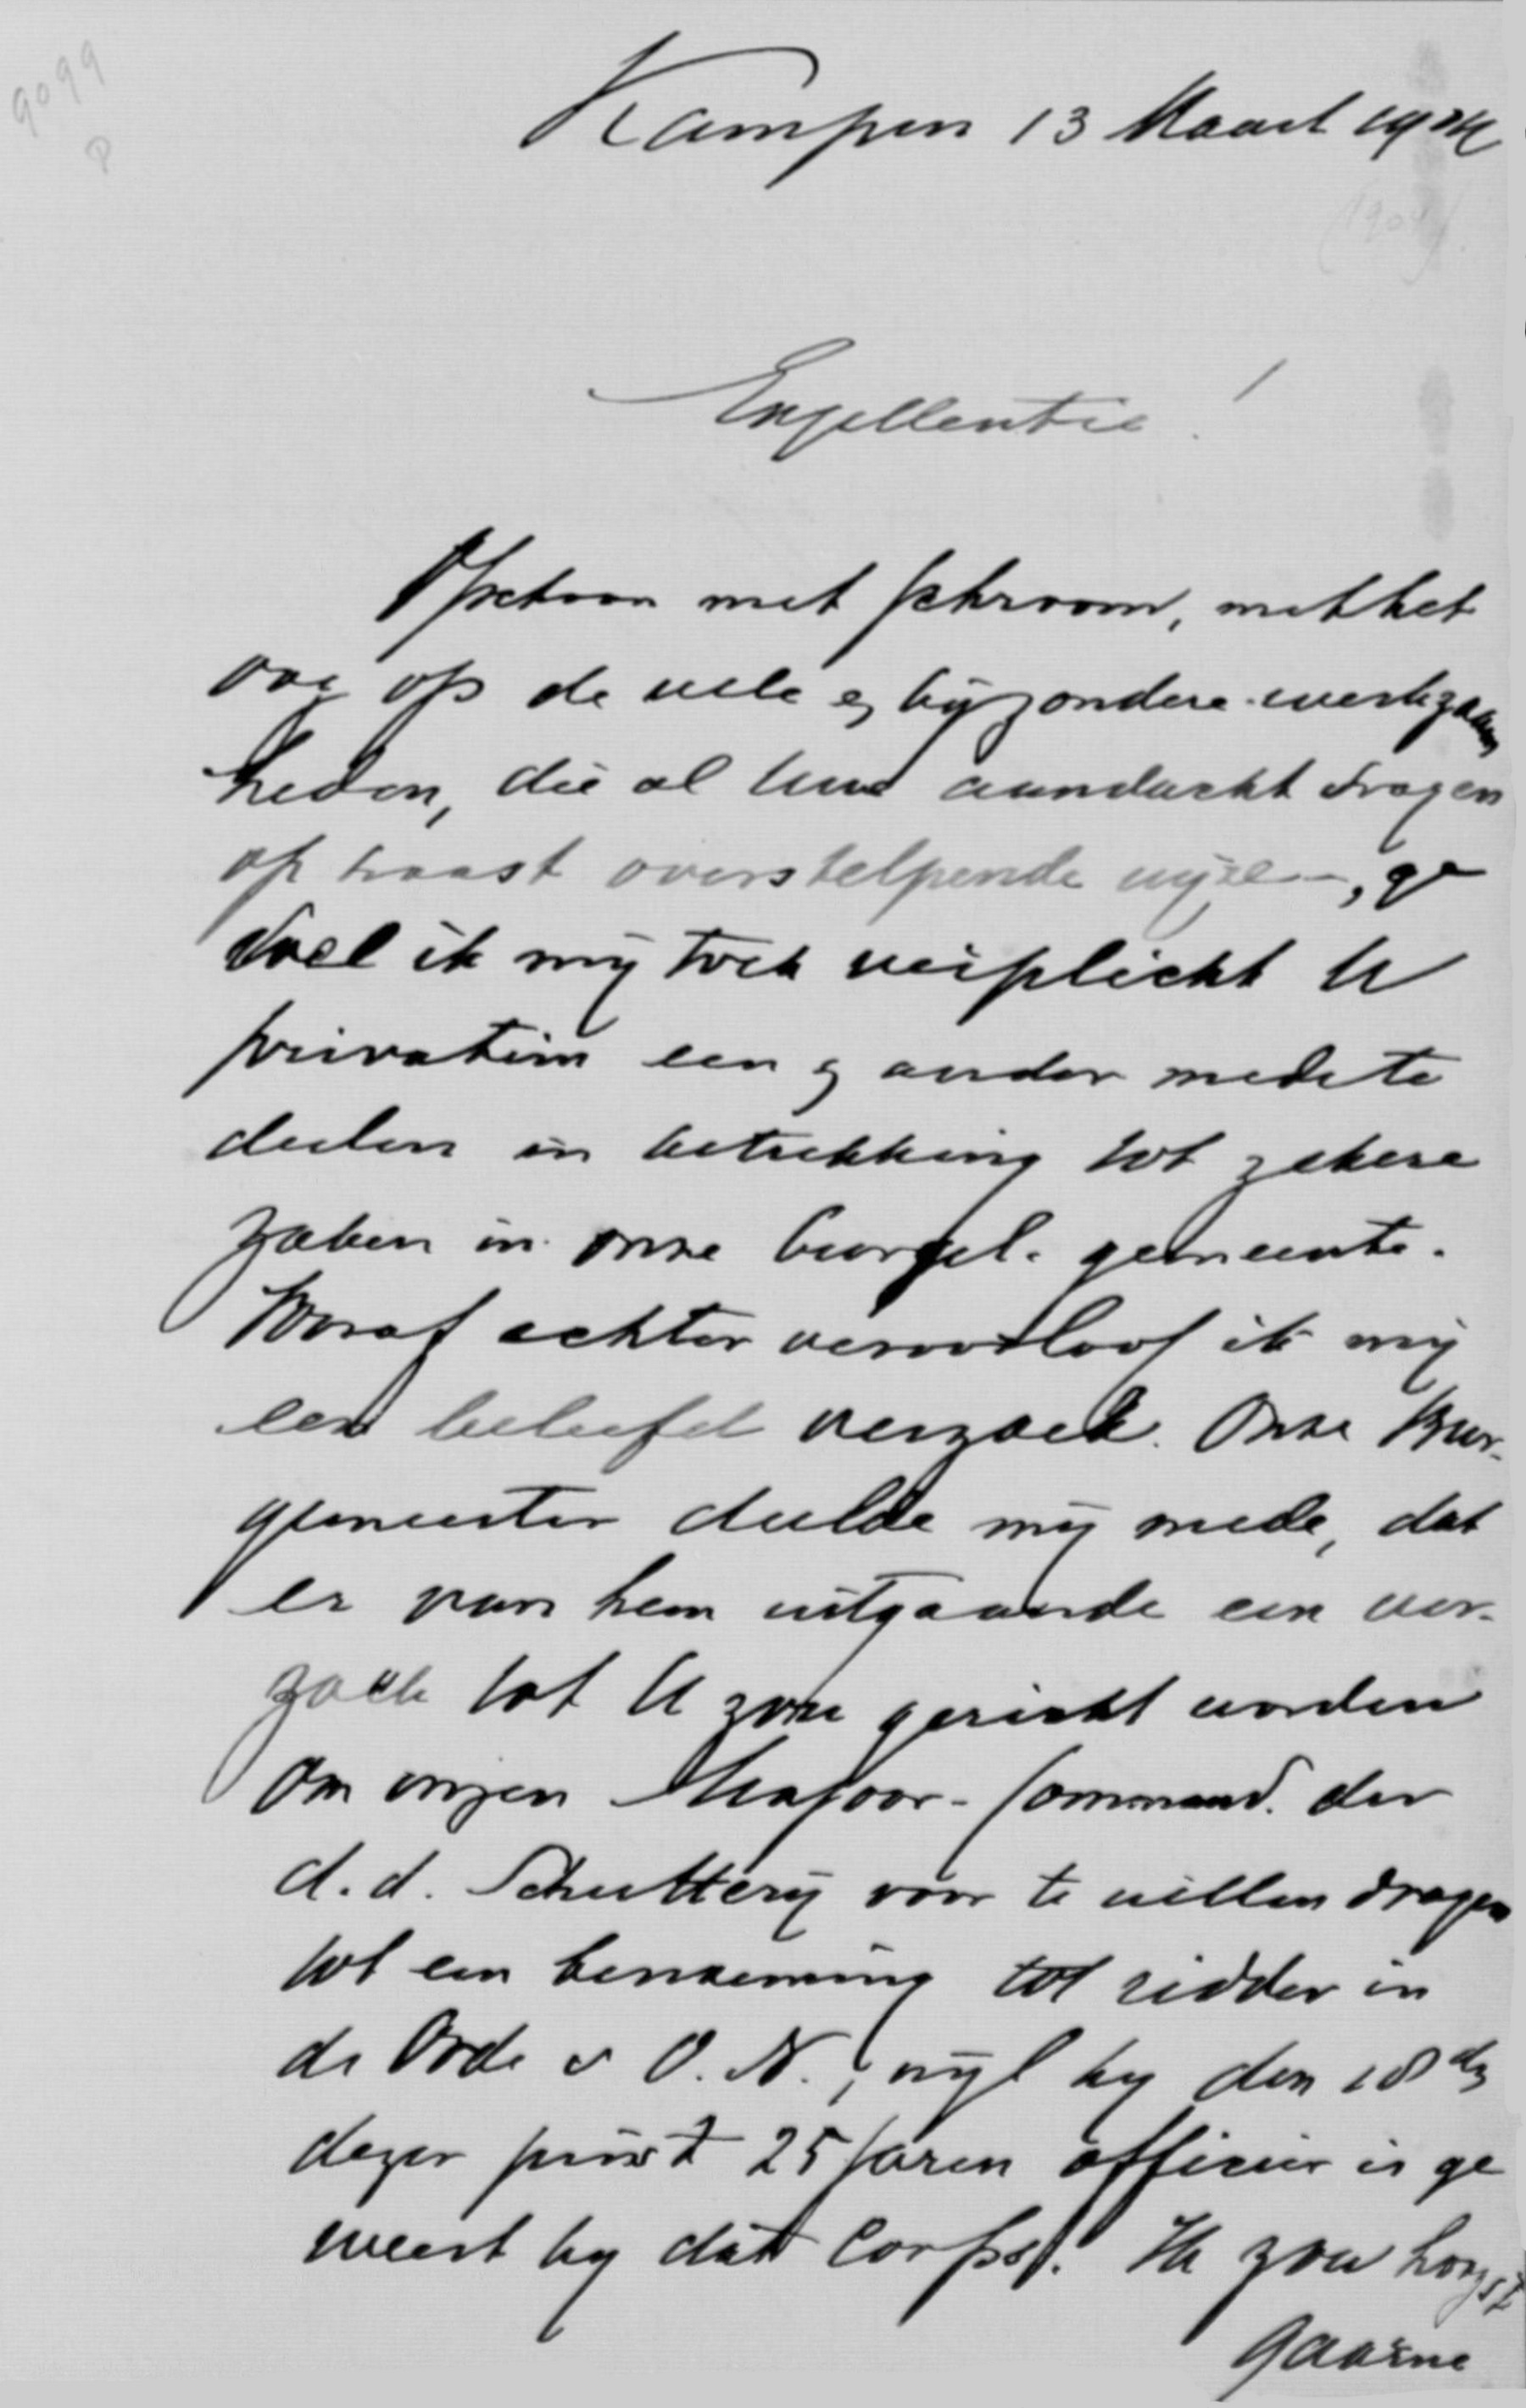 9099
P
Kampen 13 Maart 1904
(1904).
Excellentie!
Ofschoon met schroom, met het
oog op de vele en byzondere werkzaam
heden, die al Uwe aandacht vragen
op haast overstelpende wijze, ge
voel ik mij toch verplicht U
privatim een en ander mede te
deelen in betrekking tot zekere
zaken in onze burgel. gemeente.
Vooraf echter veroorloof ik mij
een beleefd verzoek. Onze Bur-
gemeester deelde mij mede, dat
er van hem uitgaande een ver-
zoek tot U zou gericht worden
om onzen Majoor-Command. der
d.d. Schutterij voor te willen dragen
tot een benoeming tot ridder in
de Orde v O. N., wijl hy den 18
dezer juist 25 jaren officier is ge
weest by dat Corps. Ik zou hoogst
gaarne